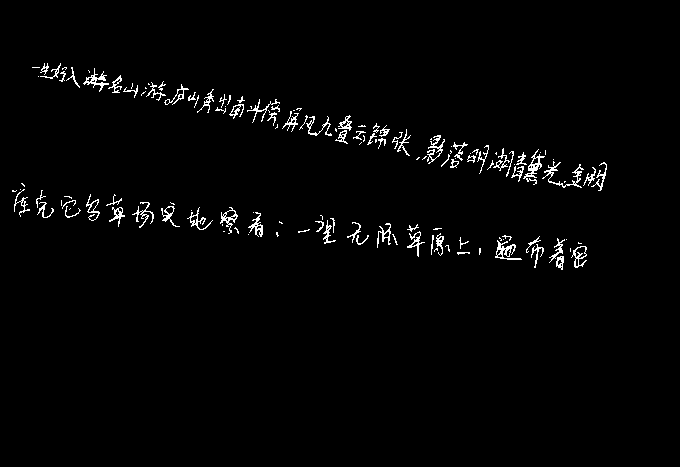 一生好入游名山游。庐山秀出南斗傍,屏风九叠云锦张,影落明湖青黛光。金阙
库克它乌草场实地察看:一望无际草原上,遍布着密